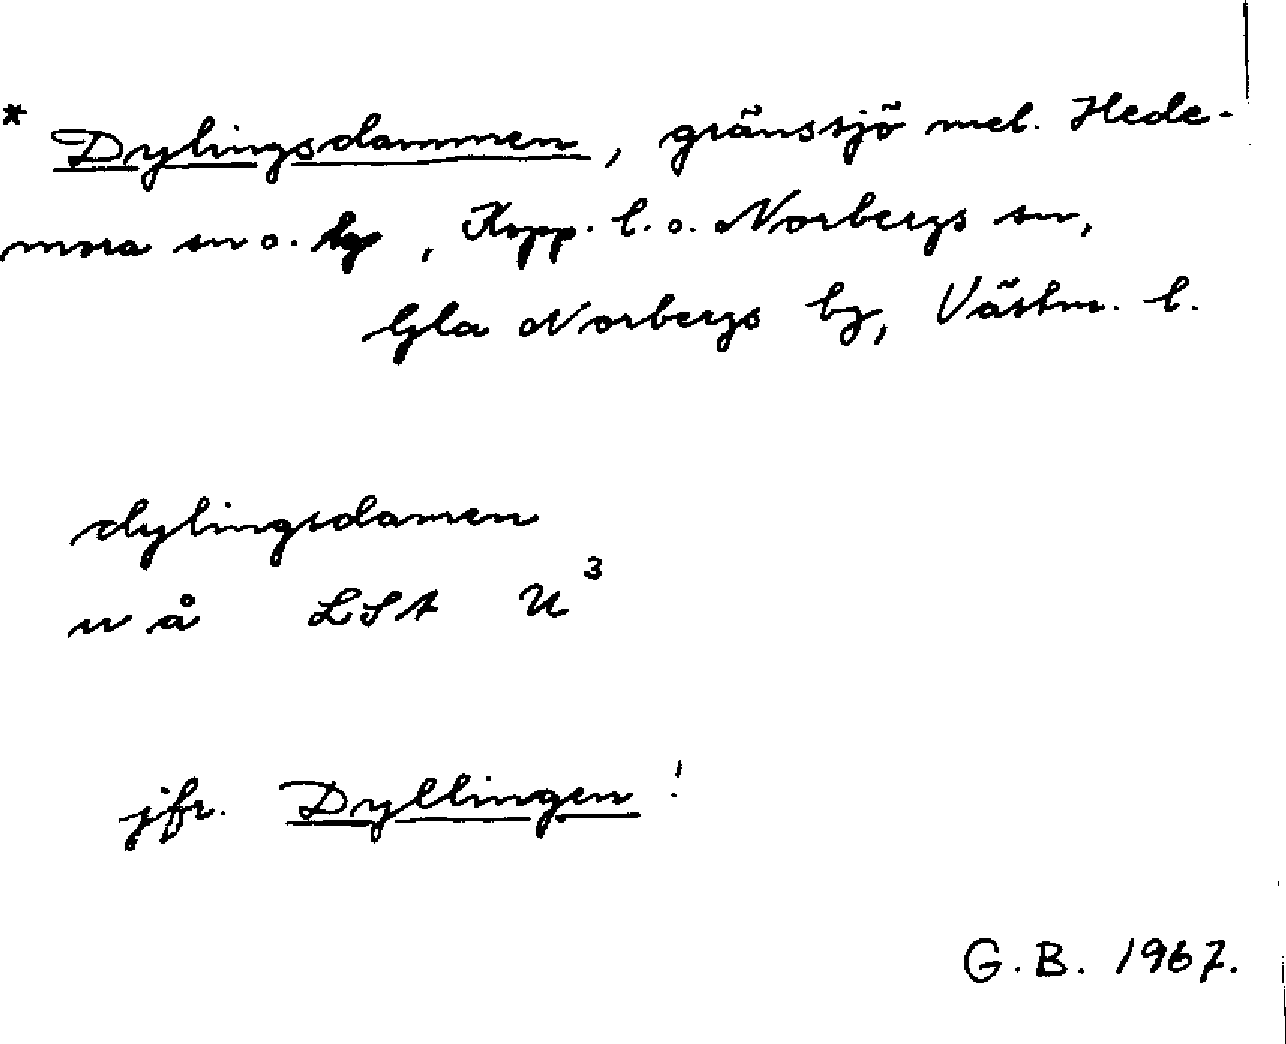 * Dylingsdammen, gränssjö mel. Hede-
mora sn o. hg, Kopp. l. o. Norbergs sn,
Gla Norbergs bg, Västm. l.
dylingsdamen
u å LSA U³
jfr. Dyllingen !
G.B. 1967.